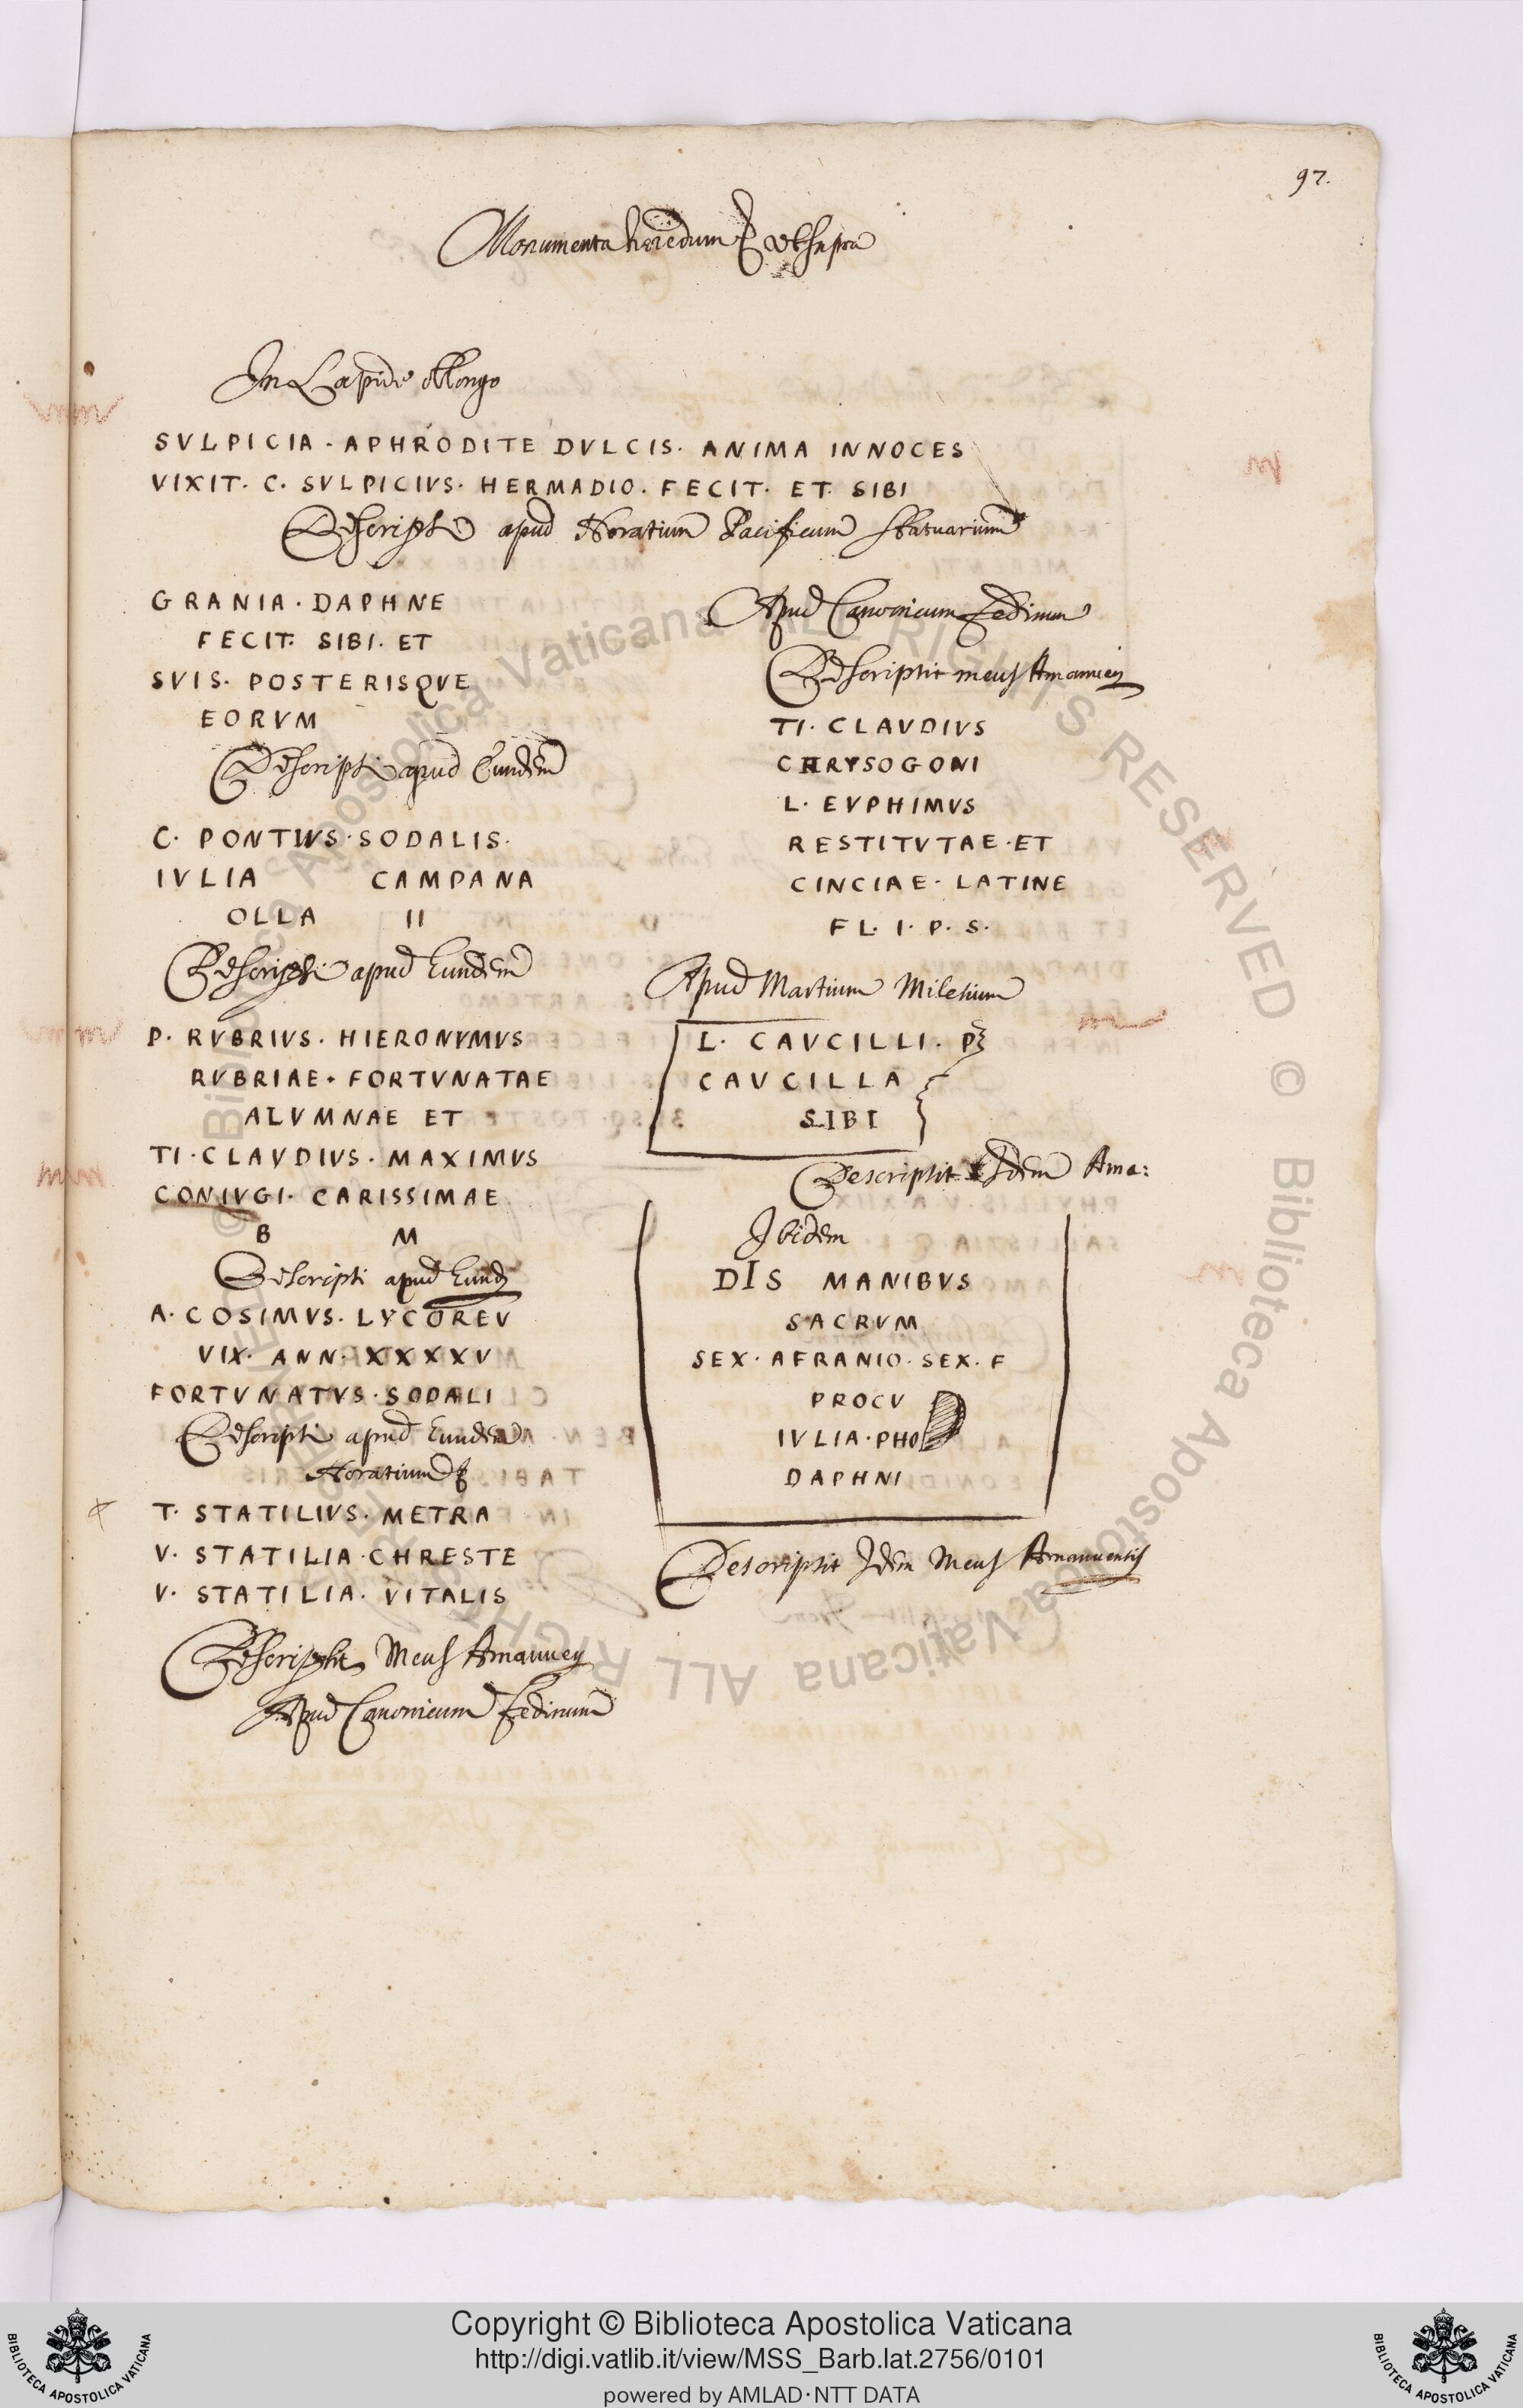 97.
Monumenta heredum & ut supra
In Lapide oblongo
SVLPICIA · APHRODITE DVLCIS · ANIMA INNOCES
VIXIT · C · SVLPICIVS · HERMADIO · FECIT · ET · SIBI
Descripsi apud Horatium Pacificum Statuarium
GRANIA · DAPHNE
FECIT · SIBI · ET
SVIS · POSTERISQVE
EORVM
Descripsi apud Eundem
C · PONTIVS · SODALIS ·
IVLIA CAMPANA
OLLA II
Descripsi apud Eundem
P · RVBRIVS · HIERONYMVS
RVBRIAE · FORTVNATAE
ALVMNAE ET
TI · CLAVDIVS · MAXIMVS
CONIVGI · CARISSIMAE
B M
Descripsi apud Eund
A · COSIMVS · LYCOREV
VIX · ANN · XXXXV
FORTVNATVS · SODALI
Descripsi apud Eundem
Horatium
T · STATILIVS · METRA
V · STATILIA · CHRESTE
V · STATILIA · VITALIS
Descripsit Meus Amanuen
Apud Canonicum Fedinum
Apud Canonicum Fedinum
Descripsit meus Amanuen
TI · CLAVDIVS
CHRYSOGONI
L · EVPHIMVS
RESTITVTAE · ET
CINCIAE · LATINE
FL · I · P · S ·
Apud Martium Milesium
L · CAVCILLI · P
CAVCILLA
SIBI
Descripsit Idem Ama:
Ibidem
DIS MANIBVS
SACRVM
SEX · AFRANIO · SEX · F
PROCV
IVLIA · PHO
DAPHNI
Descripsit Idem Meus Amanuensis
Copyright © Biblioteca Apostolica Vaticana
http://digi.vatlib.it/view/MSS_Barb.lat.2756/0101
powered by AMLAD·NTT DATA